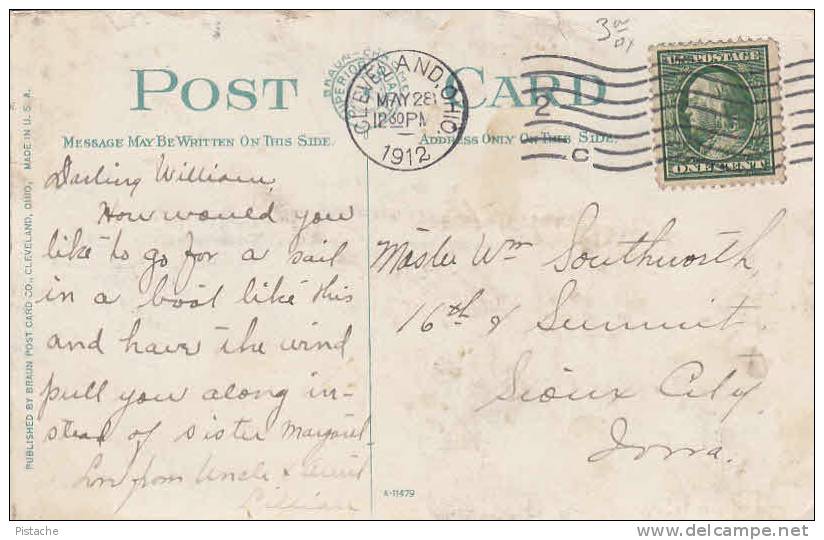 3 00
POST CARD
MESSAGE MAY BE WRITTEN ON THIS SIDE.
ADDRESS ONLY ON THIS SIDE.
CLEVELAND, OHIO
MAY 28
12 30 PM
1912
2
C
U.S. POSTAGE
ONE CENT
PUBLISHED BY BRAUN POST CARD CO., CLEVELAND, OHIO, MADE IN U.S.A.
Darling William,
How would you
like to go for a sail
in a boat like this
and have the wind
pull you along in-
stead of sister Margaret.
Love from Uncle & Aunt
Lillian
Master Wm Southworth,
16th & Summit.
Sioux City
Iowa.
A-11479
Pistache
www.delcampe.net